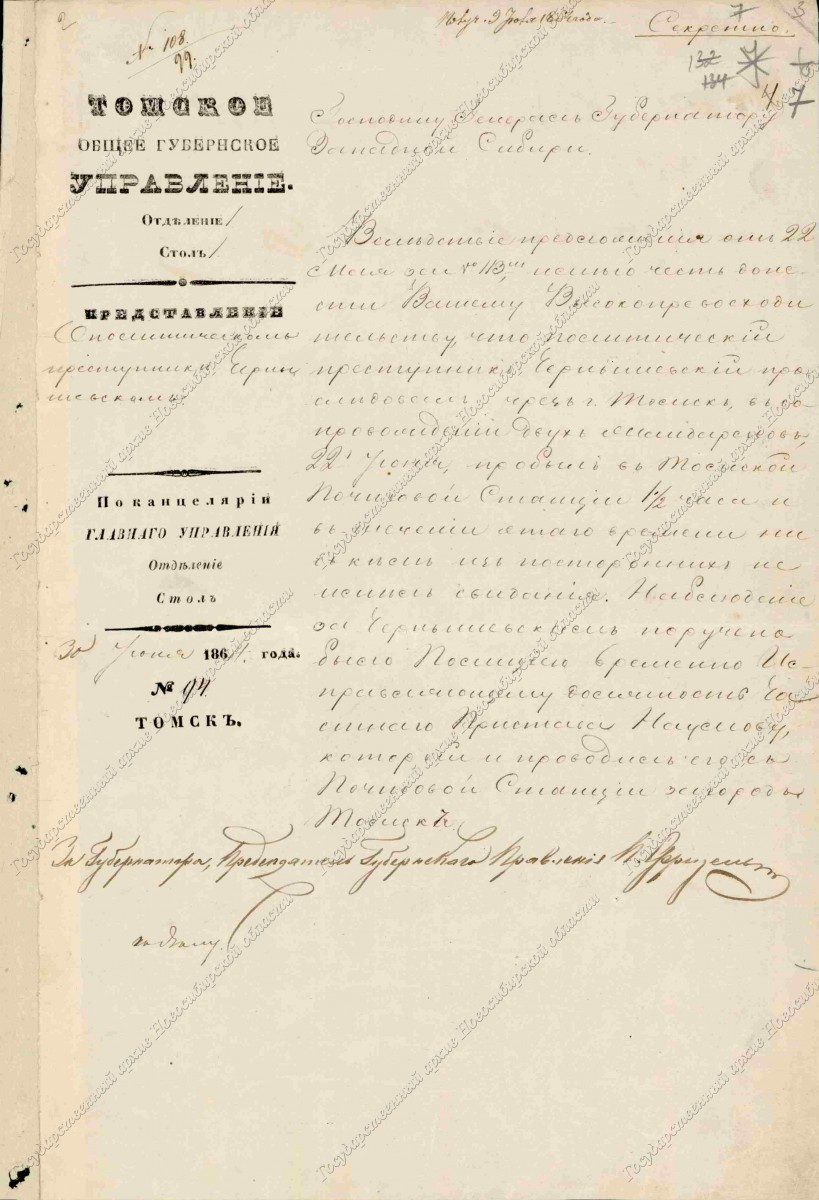 2
№ 108
99.
Секретно.
7
3
132
134
4
7
ТОМСКОЕ
ОБЩЕЕ ГУБЕРНСКОЕ
УПРАВЛЕНІЕ.
Отдѣленіе
Столъ
ПРЕДСТАВЛЕНІЕ
О политическомъ
преступникѣ Черны
шевскомъ
По канцеляріи
ГЛАВНАГО УПРАВЛЕНІЯ
Отдѣленіе
Столъ
30 Іюня 1864 года.
№ 94
ТОМСКЪ.
Господину Генералъ Губернатору
Западной Сибири.
Вслѣдствіе предложенія отъ 22
Мая за № 113, имѣю честь доне-
сти Вашему Высокопревосходи
тельству, что политическій
преступникъ Чернышевскій про
слѣдовалъ чрезъ г. Томскъ, въ со-
провожденіи двухъ жандармовъ,
22 Іюня, пробылъ въ Томской
Почтовой Станціи 1 1/2 часа и
въ теченіи этаго времени ни
съ кѣмъ изъ постороннихъ не
имѣлъ свиданія. Наблюденіе
за Чернышевскимъ поручено
было мною временно Ис-
правляющему должность Ча-
стнаго Пристава Наумову,
который и проводилъ его съ
Почтовой Станціи за городъ
Томскъ.
За Губернатора, Предсѣдатель Губернскаго Правленія П. Фризель
къ дѣлу.
Государственный архив Новосибирской области